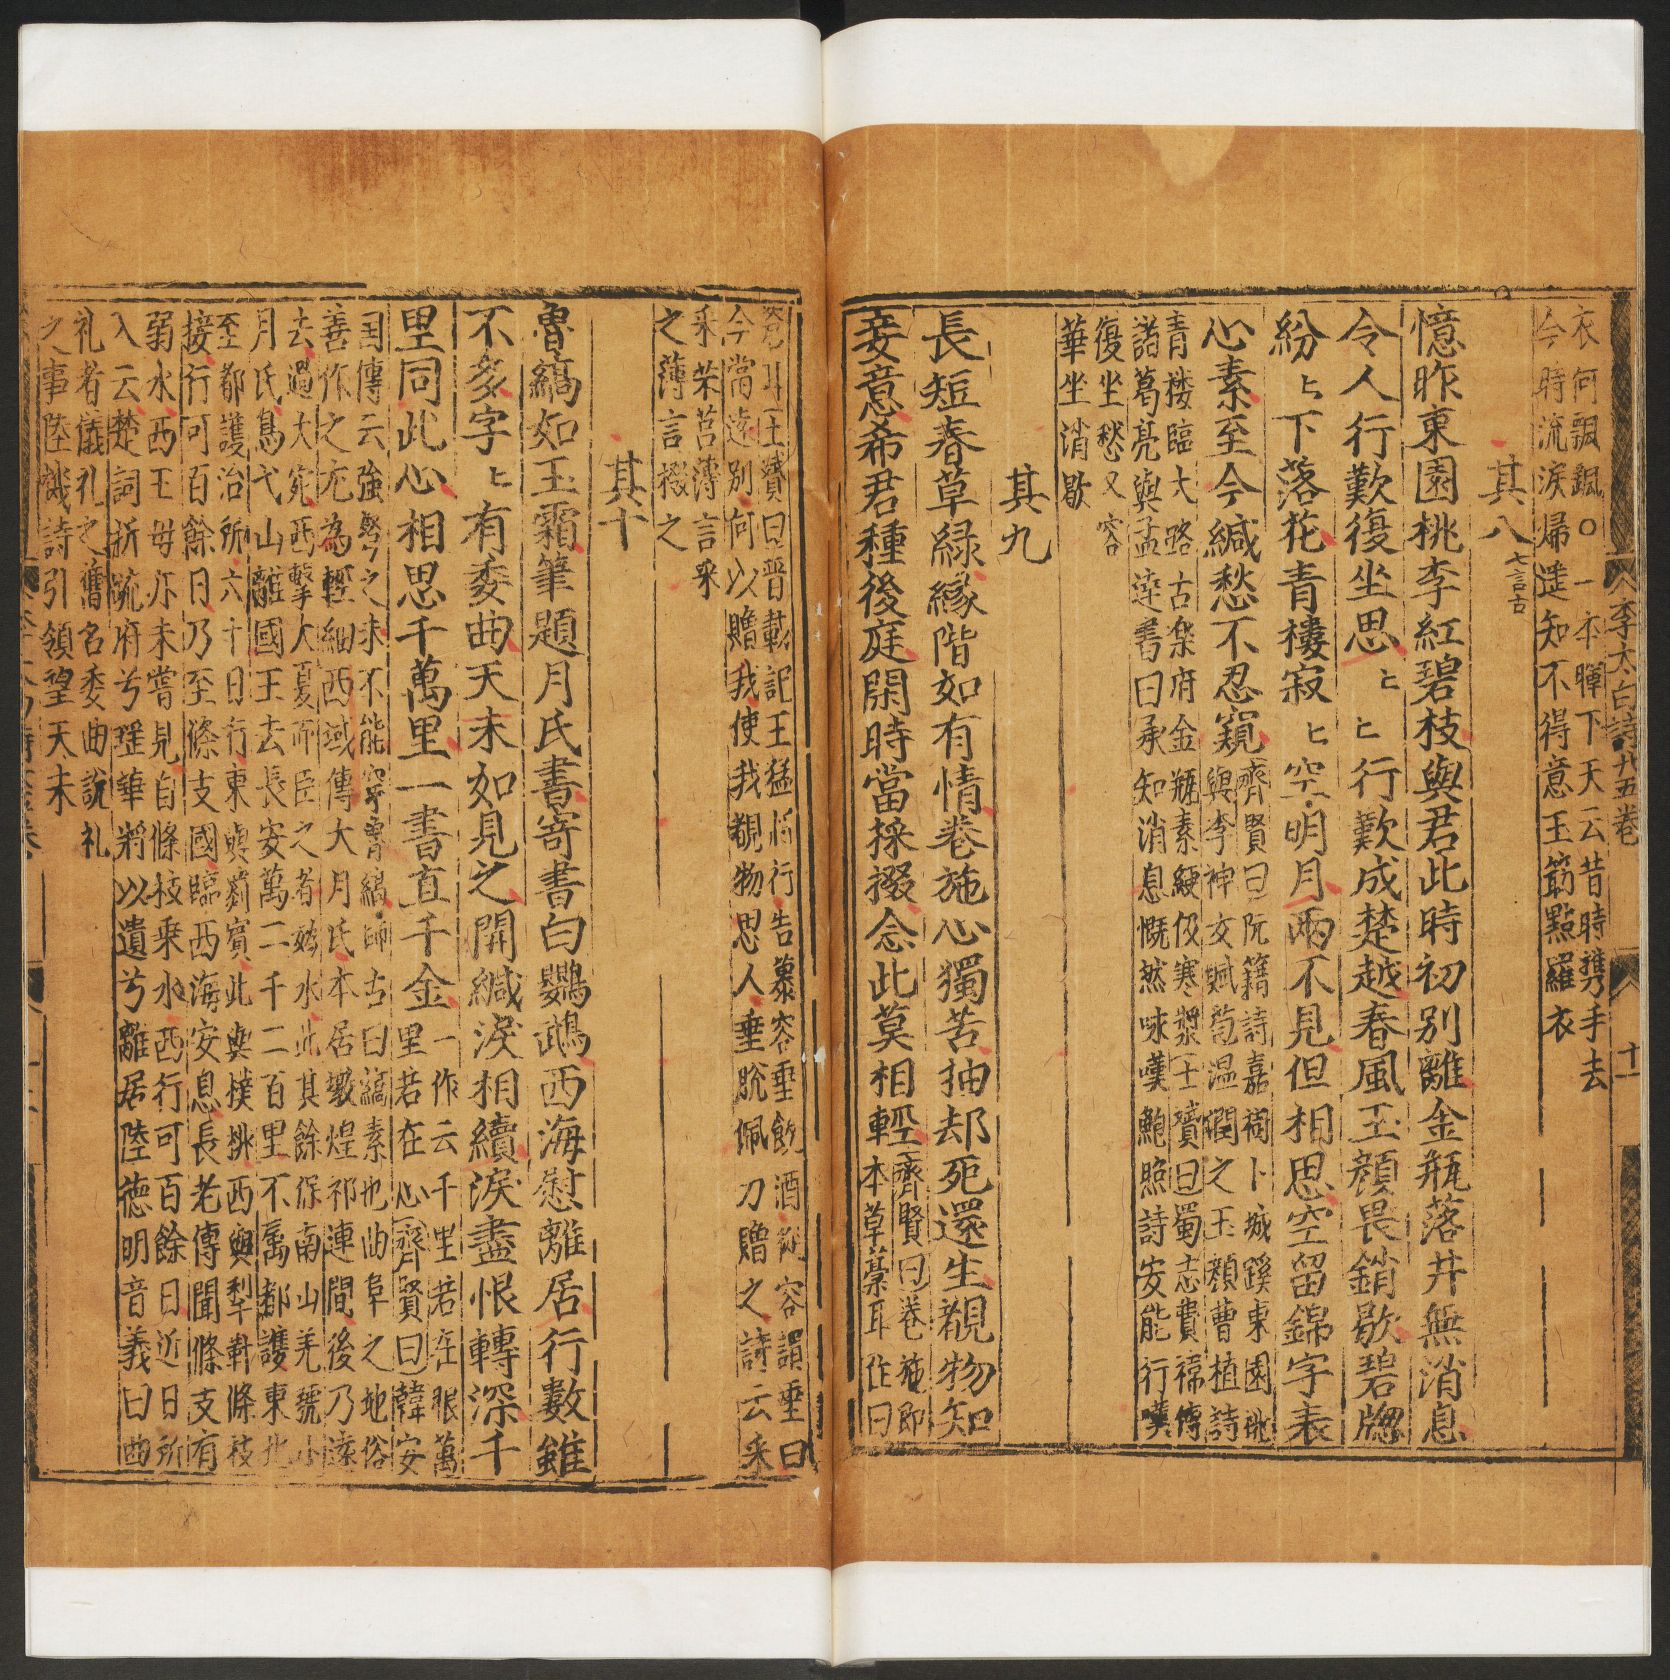 李太白詩廿五卷
十一
衣何飄飄〇一本暉下天云昔時携手去
今時流淚歸遥知不得意玉筯點羅衣
其八 七言古
憶昨東園桃李紅碧枝與君此時初别離金瓶落井無消息
令人行歎復坐思〻〻行歎成楚越春風玉顔畏銷歇碧牎
紛〻下落花青樓寂〻空明月兩不見但相思空留錦字表
心素至今緘愁不忍窺
齊賢曰阮籍詩嘉樹下成蹊東園桃
與李神女賦苞温潤之玉顔曹植詩
青楼臨大路古楽府金瓶素綆汲寒漿士贇曰蜀志費禕傳
諸葛亮與孟逹書曰承知消息慨然咏嘆鮑照詩安能行嘆
復坐愁又容
華坐消歇
其九
長短春草緑緣階如有情卷施心獨苦抽却死還生覩物知
妾意希君種後庭閑時當採掇念此莫相輕
齊賢曰卷施即
本草藁耳作曰
卷耳士贇曰晉載記王猛将行告慕容垂飲酒從容謂垂曰
今當逺别何以贈我使我覩物思人垂脫佩刀贈之詩云采
采芣苢薄言采
之薄言掇之
其十
魯縞如玉霜筆題月氏書寄書白鸚鵡西海慰離居行數雖
不多字〻有委曲天末如見之開緘淚相續淚盡恨轉深千
里同此心相思千萬里一書直千金
一作云千里若在眼萬
里若在心齊賢曰韓安
国傳云強弩之末不能穿魯縞師古曰縞素也曲阜之地俗
善作之尤為輕細西域傳大月氏本居燉煌祁連間後乃逺
去過大宛西擊大夏而臣之者媯水北其餘保南山羌號小
月氏烏弋山離國王去長安萬二千二百里不屬都護東北
至都護治所六十日行東與罽賓北與撲挑西與犁軒條枝
接行可百餘日乃至條支國臨西海安息長老傳聞條支有
弱水西王母亦未嘗見自條枝乗水西行可百餘日近日所
入云楚詞折疏府兮瑶華将以遺兮離居陸德明音義曰曲
礼者儀礼之舊名委曲說礼
之事陸機詩引領望天末